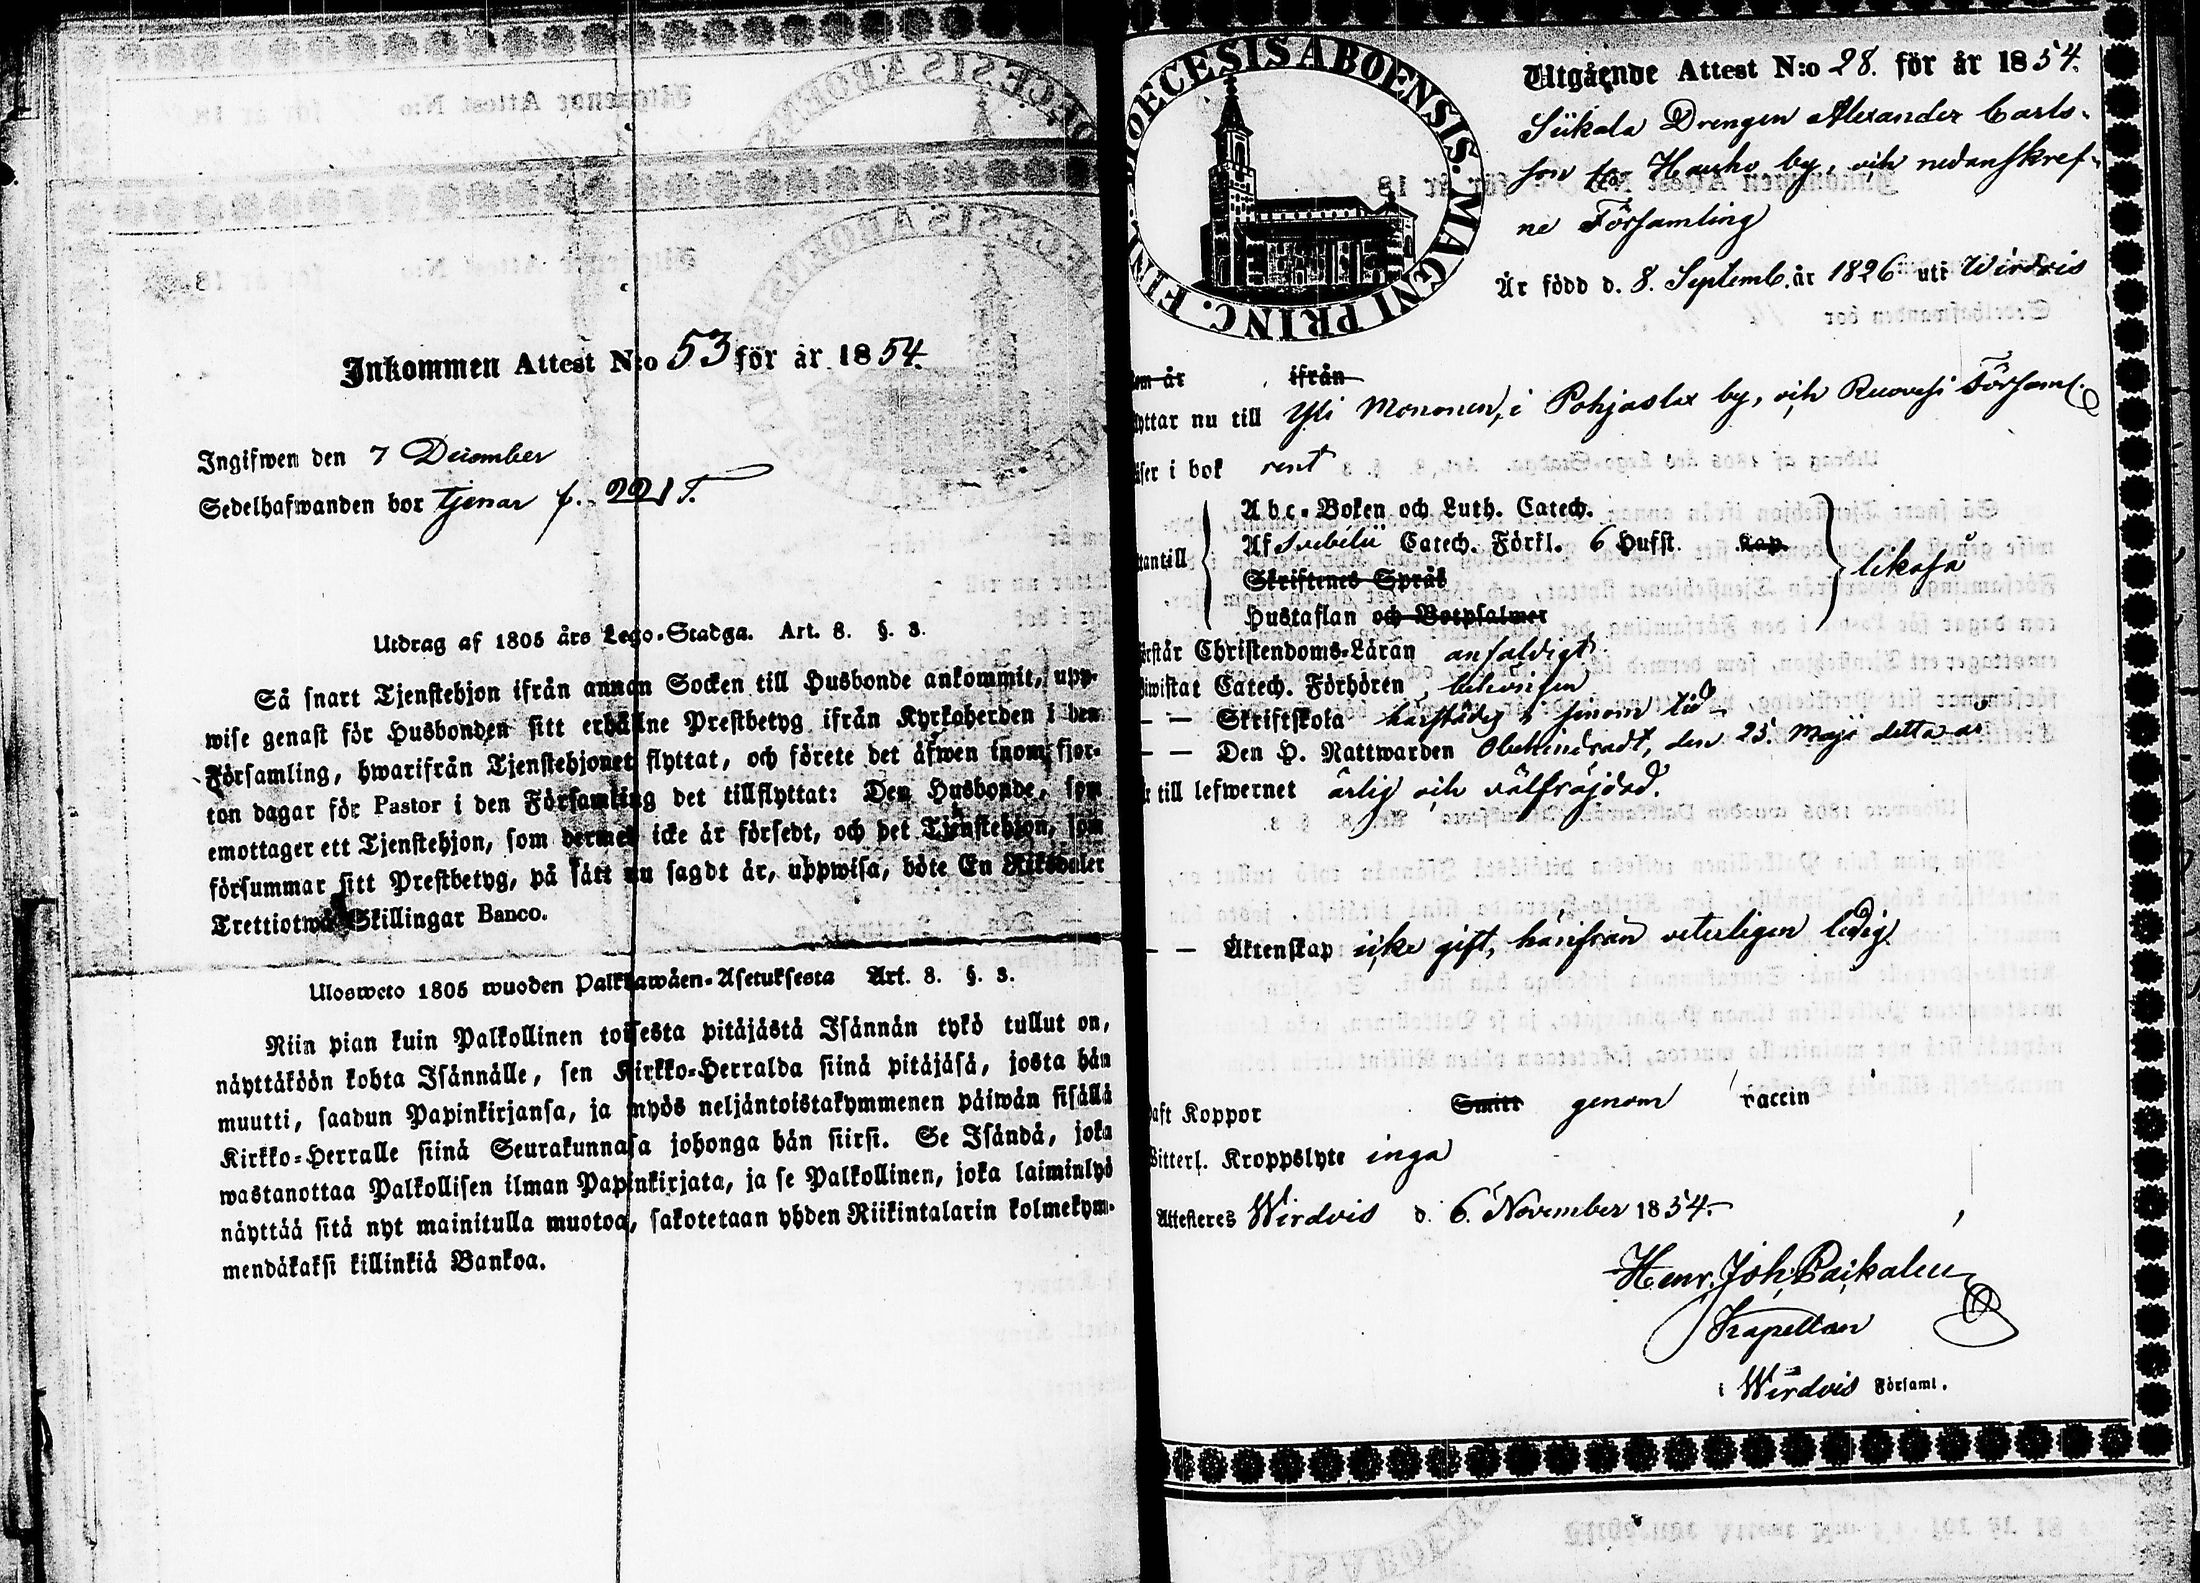 Inkommen Attest N:o 53 för år 1854.
Ingifwen den 7 December
Sedelhafwanden bor tjenar f. 221 T.
Utdrag af 1805 års Lego-Stadga. Art. 8. §. 3.
Så snart Tjenstehjon ifrån annan Socken till Husbonde ankommit, upp-
wise genast för Husbonden sitt erhållne Prestbetyg ifrån Kyrkoherden i den
Församling, hwarifrån Tjenstehjonet flyttat, och förete det äfwen inom fjor-
ton dagar för Pastor i den Församling det tillflyttat: Den Husbonde, som
emottager ett Tjenstehjon, som dermed icke är försedt, och det Tjenstehjon, som
försummar sitt Prestbetyg, på sätt nu sagdt är, uppwisa, böte En Riksdaler
Trettiotwå Skillingar Banco.
Ulosweto 1805 wuoden Palkkawäen-Asetuksesta Art. 8. §. 3.
Niin pian kuin Palkollinen toisesta pitäjästä Isännän tykö tullut on,
näyttäköön kohta Isännälle, sen Kirkko-Herralda siinä pitäjäsä, josta hän
muutti, saadun Papinkirjansa, ja myös neljäntoistakymmenen päiwän sisällä
Kirkko-Herralle siinä Seurakunnasa johonga hän siirsi. Se Isändä, joka
wastanottaa Palkollisen ilman Papinkirjata, ja se Palkollinen, joka laiminlyö
näyttää sitä nyt mainitulla muotoa, sakotetaan yhden Riikintalarin kolmekym-
mendäkaksi killinkiä Bankoa.
DIOECESIS ABOENSIS. MAGNI PRINC. FINL.
Utgående Attest N:o 28. för år 1854.
Siikala Drengen Alexander Carls-
son fra Hauho by, och nedanskref-
ne Församling
Är född d. 8. Septemb. år 1826 uti Wirdois
som är ifrån
flyttar nu till Yli Mononen, i Pohjaslax by, och Ruovesi Församl.
läser i bok rent
utantill
Abc-Boken och Luth. Catech.
Af Svebilii Catech. Förkl. 6 Hufst. Kap.
Skriftenes Språk
Hustaflan och Botpsalmer
likaså
förstår Christendoms-Läran enfaldigt
biwistat Catech. Förhören behörigen
— — Skriftskola härstädes i sinom tid
— — Den H. Nattwarden Obehindradt, den 25. Maji detta år
är till lefwernet ärlig och välfräjdad.
— — Äktenskap icke gift, härifrån veterligen ledig.
haft Koppor Smitt genom vaccin
Witterl. Kroppslyte inga
Attesteres Wirdois d. 6. November 1854.
Henr. Joh. Paikalén
Kapellan
i Wirdois Församl.